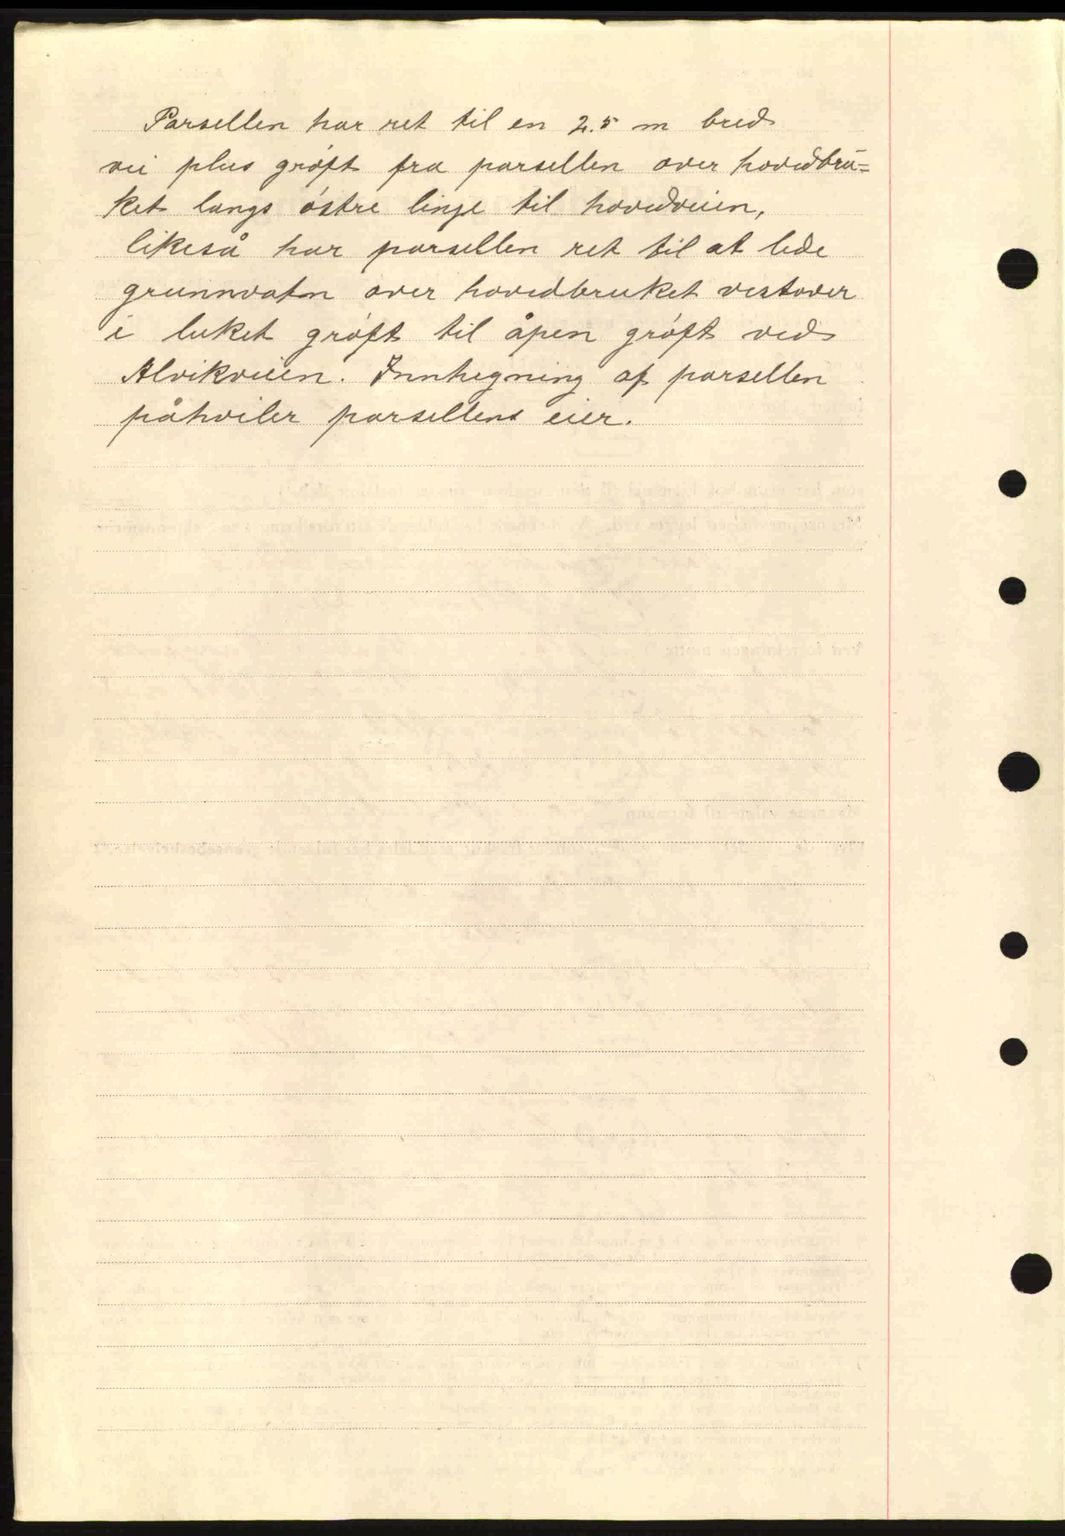 Parsellen har ret til en 2.5 m bred
vei plus grøft fra parsellen over hovedbru=
ket langs østre linje til hovedveien,
likeså har parsellen ret til at lede
grunnvatn over hovedbruket vestover
i luket grøft til åpen grøft ved
Alvikveien. Innhegning af parsellen
påhviler parsellens eier.